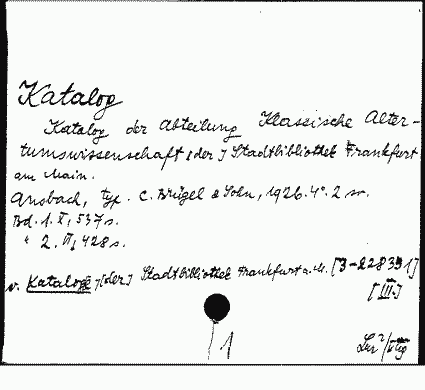 Katalog
Katalog der Abteilung Klassische Alter-
tumswissenschaft [der] Stadtbibliothek Frankfurt
am Main.
Ansbach, typ. C. Brügel & Sohn, 1926. 4°. 2 sv.
Bd. 1. X, 537 s.
" 2. VI, 428 s.
v. Kataloge, [der] Stadtbibliothek Frankfurt a. M. [3-228351]
[III.]
1